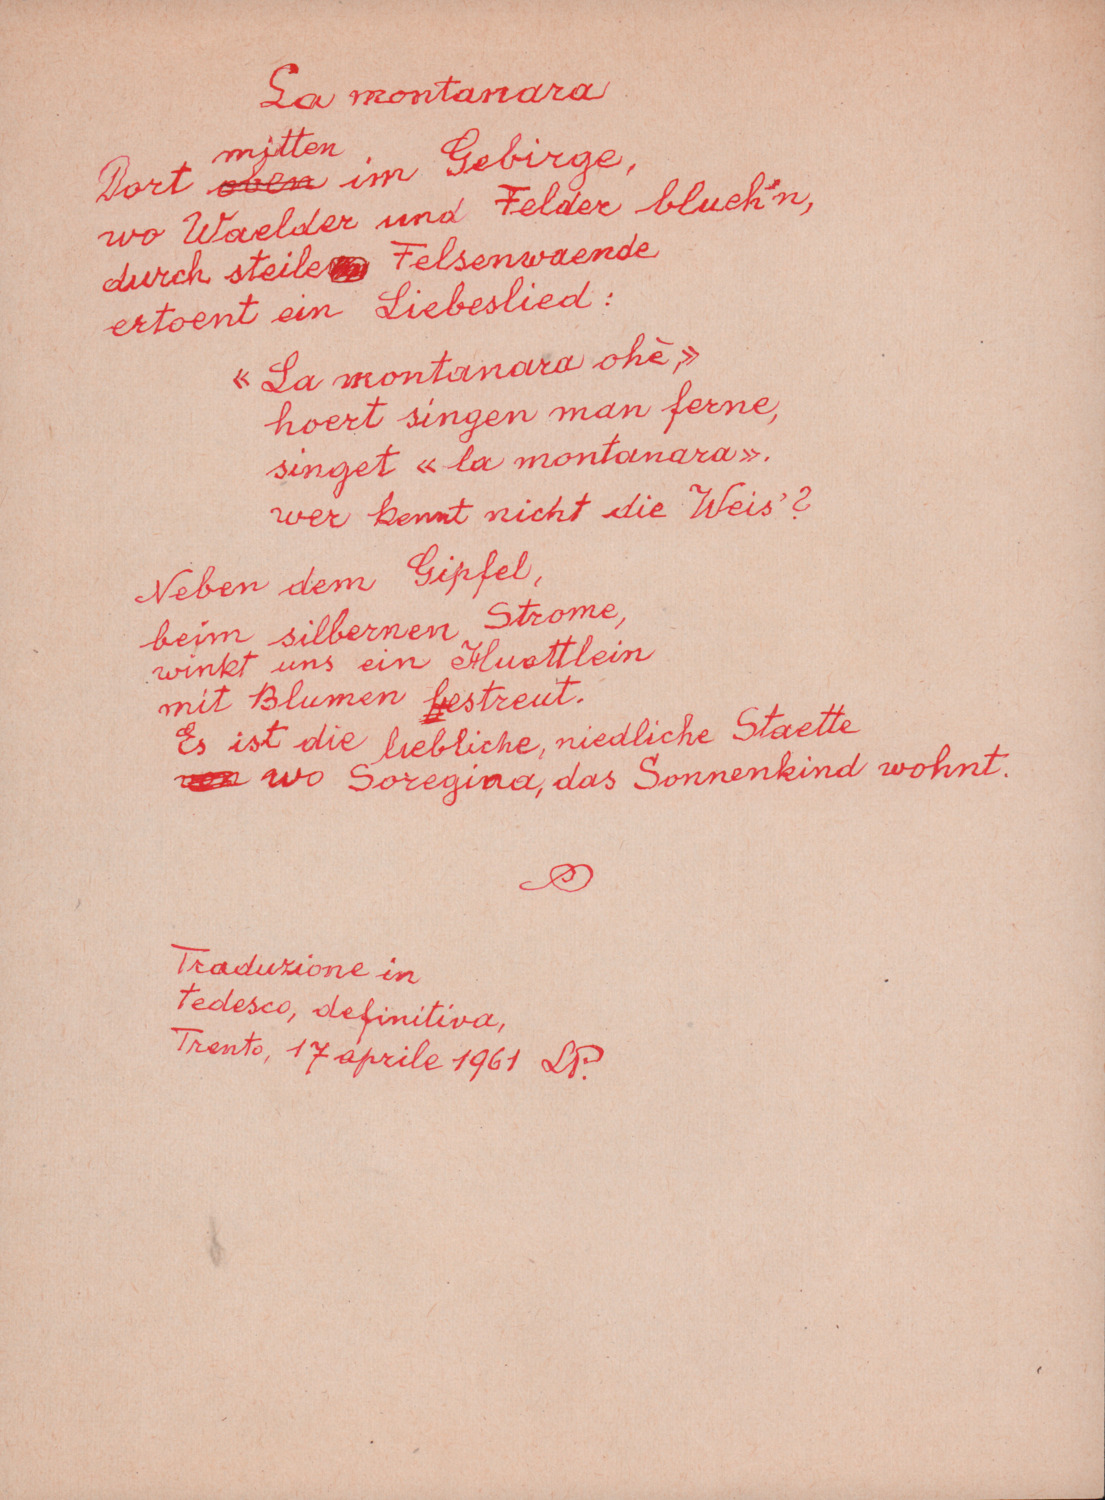 La montanara
mitten
Dort oben im Gebirge,
wo Waelder und Felder blueh'n,
durch steile Felsenwaende
ertoent ein Liebeslied:
« La montanara ohè,»
hoert singen man ferne,
singet « la montanara».
wer kennt nicht die Weis'?
Neben dem Gipfel,
beim silbernen Strome,
winkt uns ein Huettlein
mit Blumen bestreut.
Es ist die liebliche, niedliche Staette
von wo Soregina, das Sonnenkind wohnt.
Traduzione in
tedesco, definitiva,
Trento, 17 aprile 1961 LP.